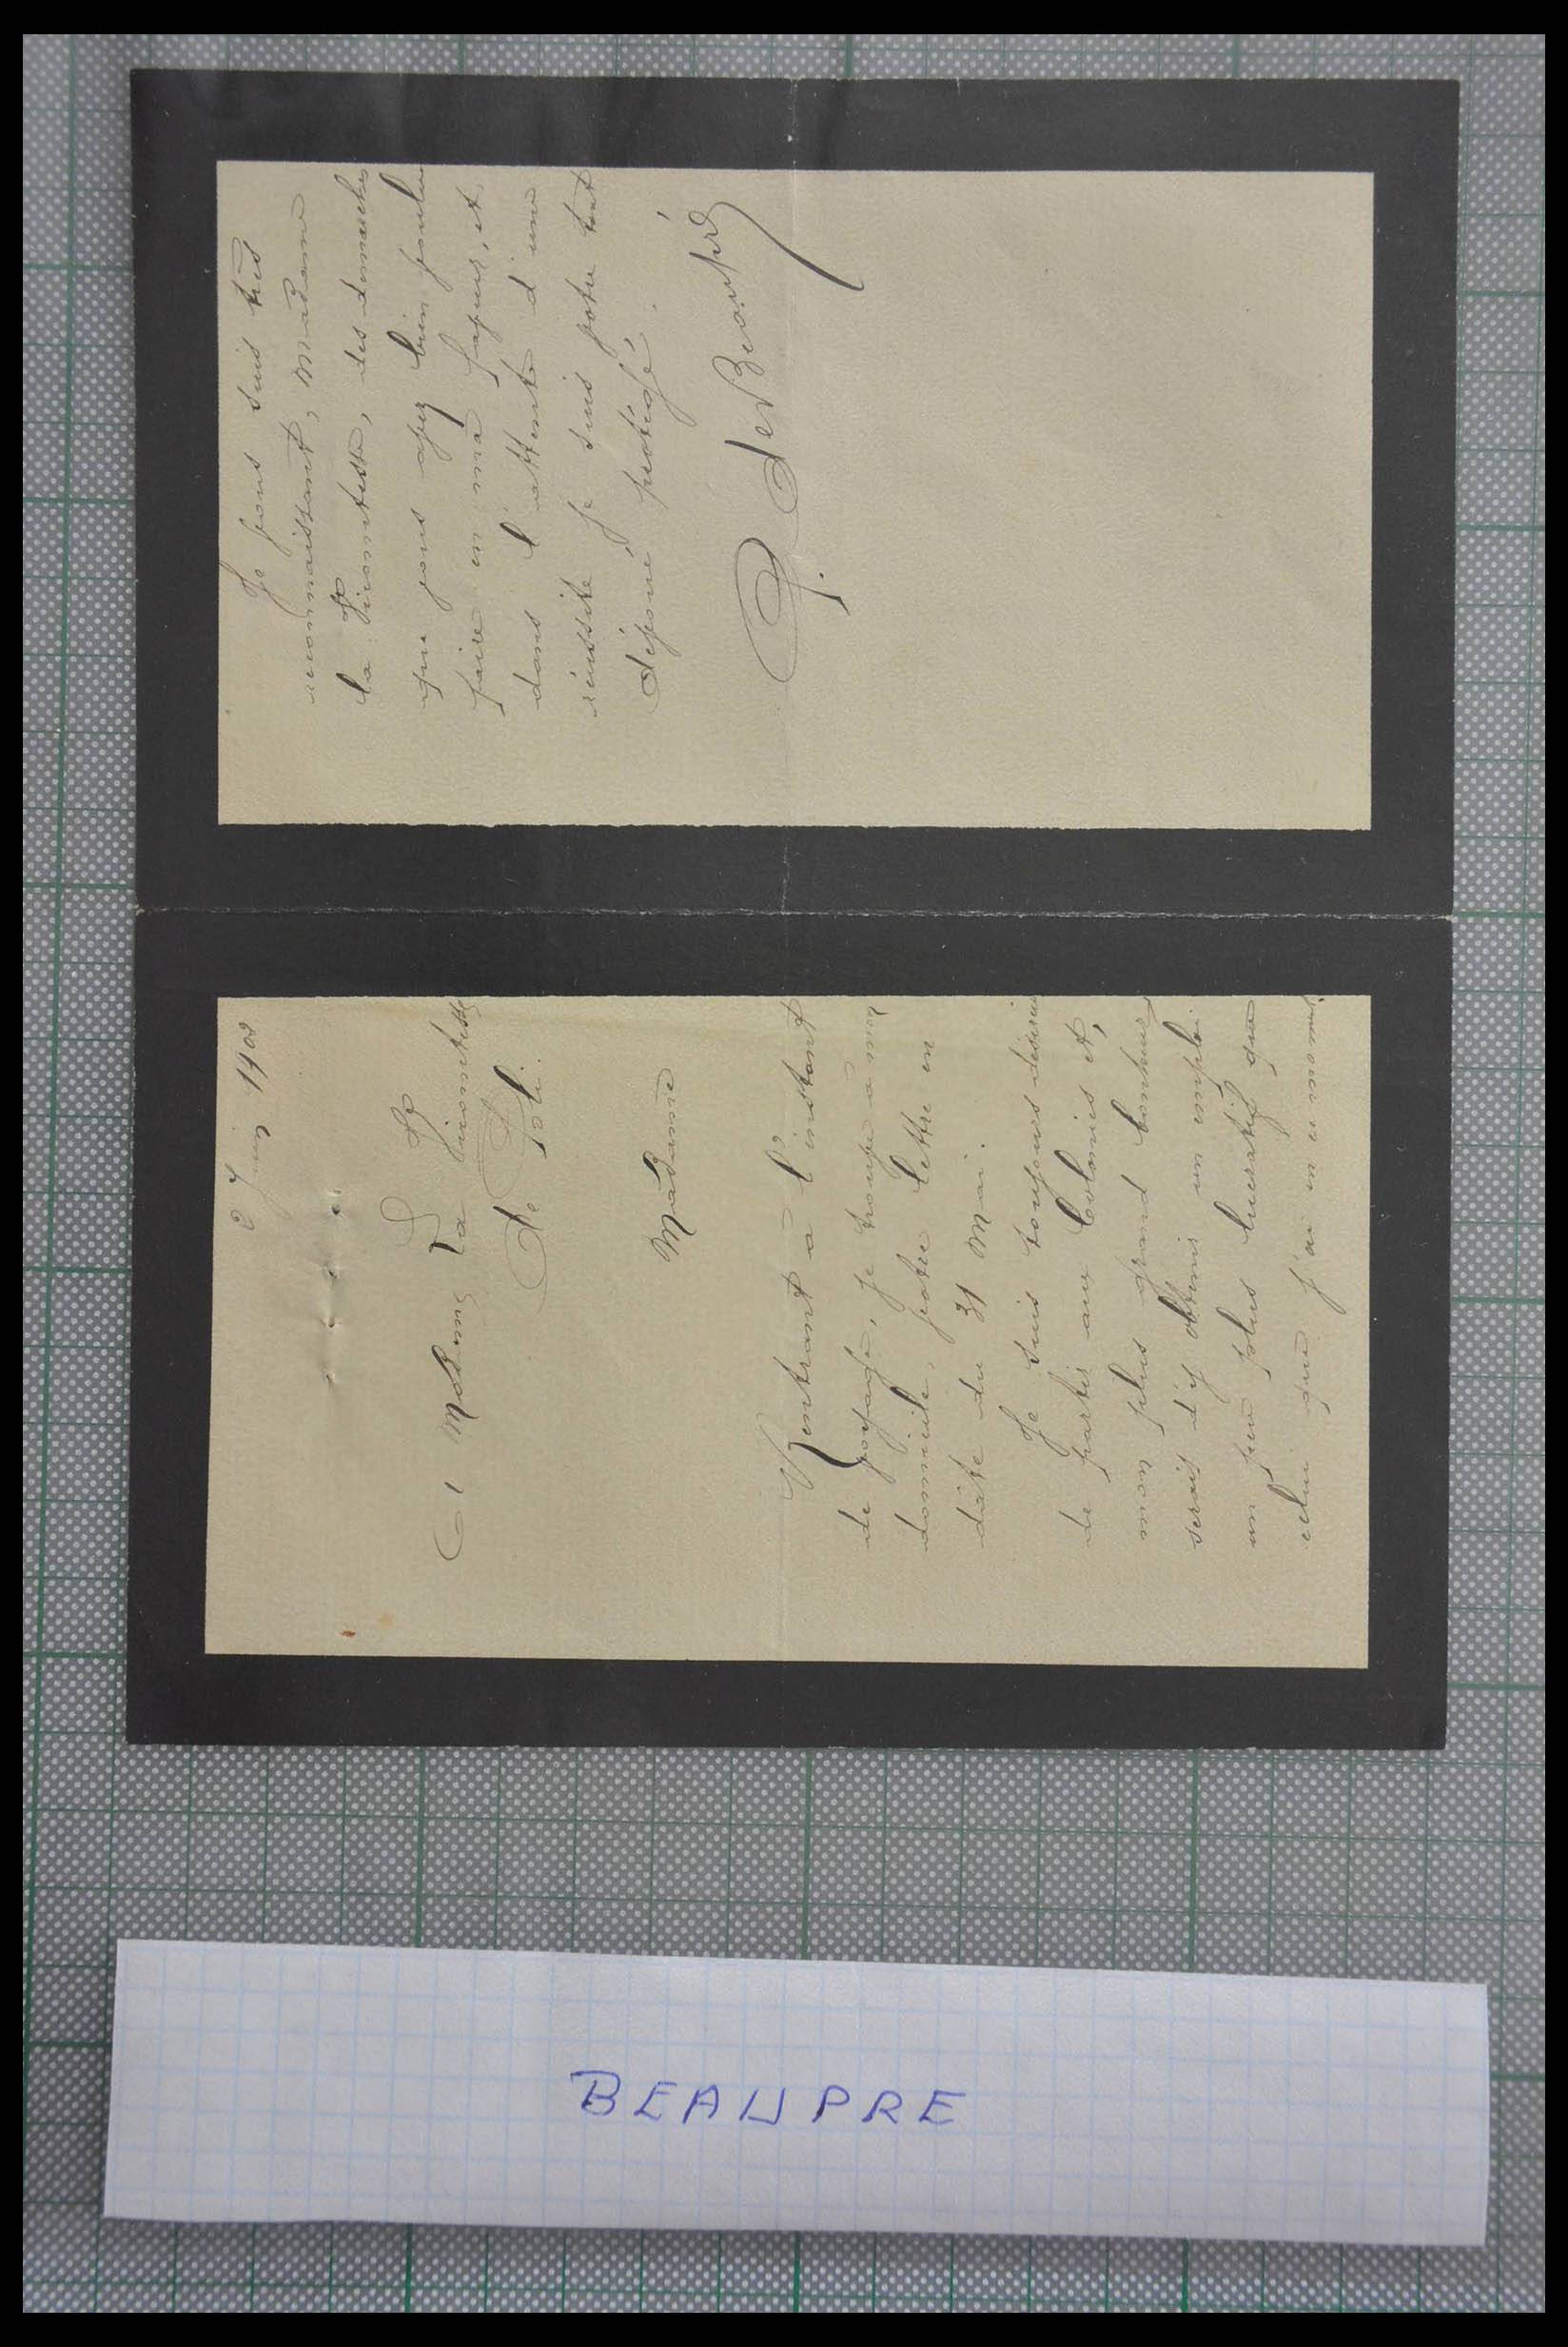 2 Juin 1902
A Madame La Vicomtesse
De Poli.
Madame
Rentrant à l'instant
de voyage, je trouve à mon
domicile, votre lettre en
date du 31 Mai.
Je suis toujours désireux
de partir aux Colonies et,
mon plus grand bonheur
serait d'y obtenir un emploi
un peu plus lucratif que
celui que j'ai en ce moment
Je vous suis très
reconnaissant, Madame
la Vicomtesse, des démarches
que vous avez bien voulu
faire en ma faveur, et
dans l'attente d'une
réussite je suis votre tout
dévoué protégé.
de Beaupré
BEAUPRE